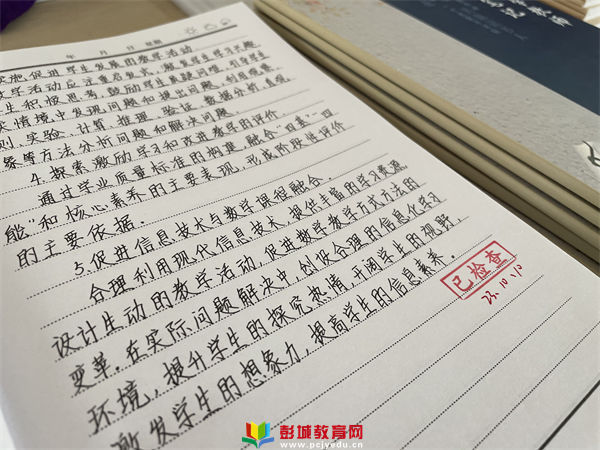 年 月 日 星期
实施促进学生发展的教学活动
教学活动应注重启发式,激发学生学习兴趣,
生积极思考,鼓励学生质疑问难,引导学生
实情境中发现问题和提出问题,利用观察、
测、实验、计算、推理、验证、数据分析、直观
象等方法分析问题和解决问题。
4.探索激励学习和改进教学的评价
通过学业质量标准的构建,融合“四基”“四
能”和核心素养的主要表现,形成阶段性评价
的主要依据
5.促进信息技术与数学课程融合.
合理利用现代信息技术,提供丰富的学习资源,
设计生动的教学活动,促进数学教学方式方法的
变革.在实际问题解决中,创设合理的信息化学习
环境,提升学生的探究热情,开阔学生的视野,
激发学生的想象力,提高学生的信息素养.
已检查
23.10.10
彭城教育网
www.pcjyedu.cn